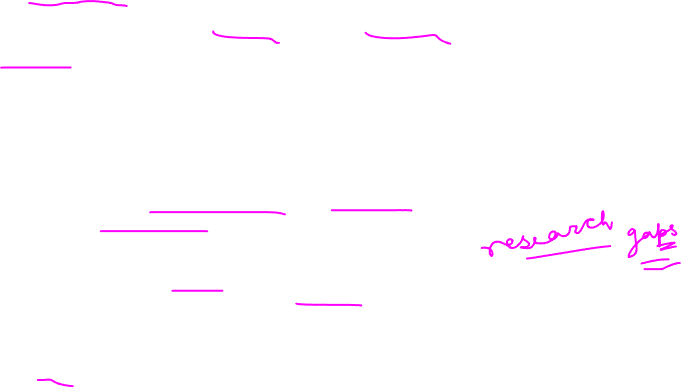 research gaps